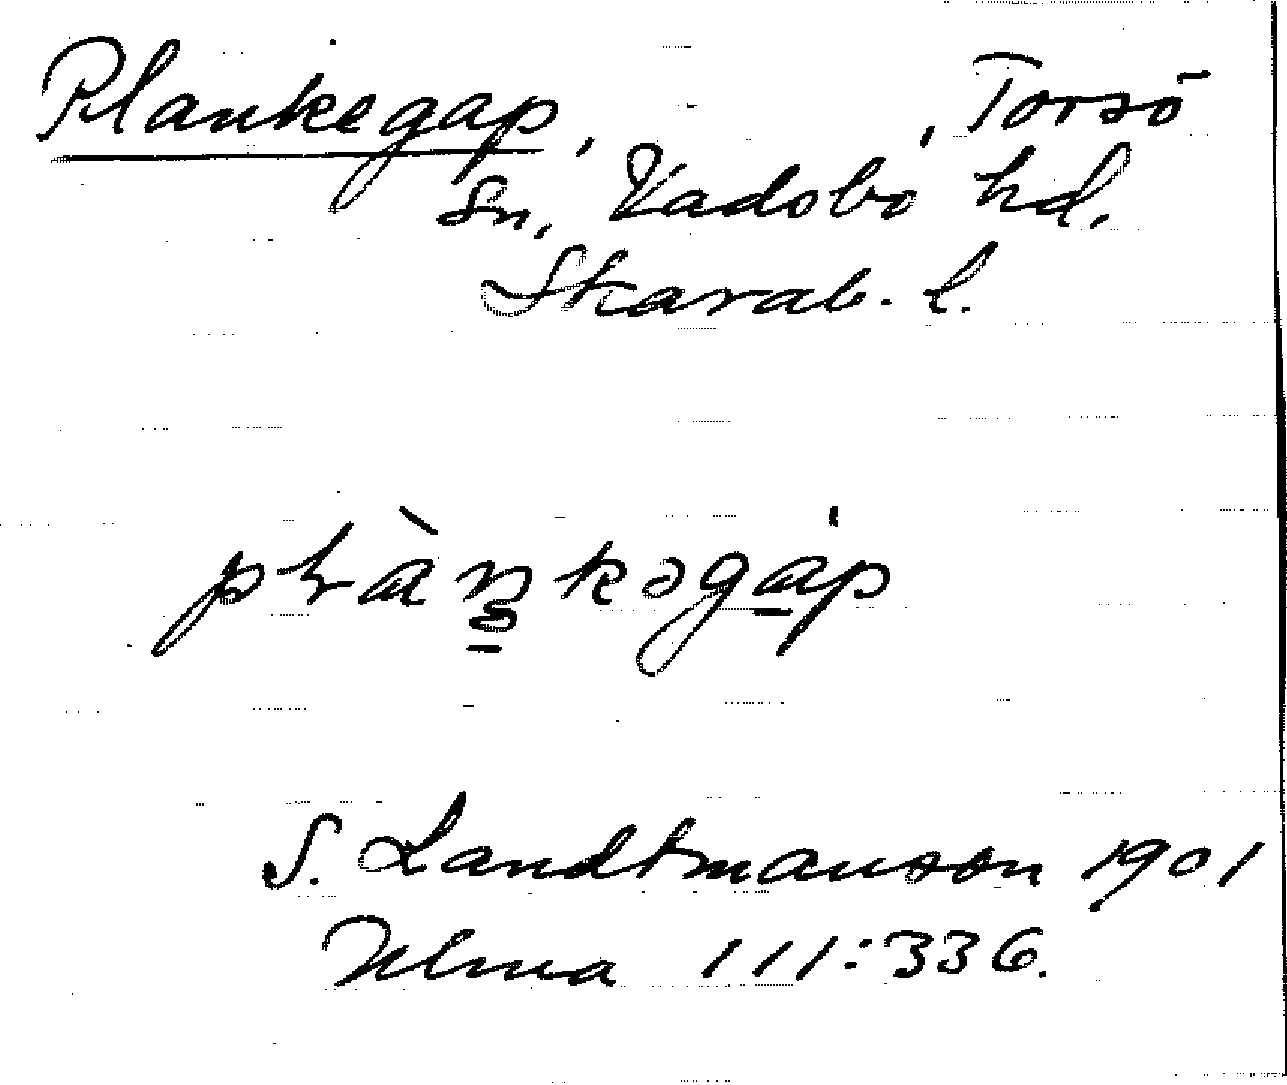 Plankegap, , Torsö
sn, Vadsbo hd.
Skarab. l.
S. Landtmanson 1901
Ulma 111:336.